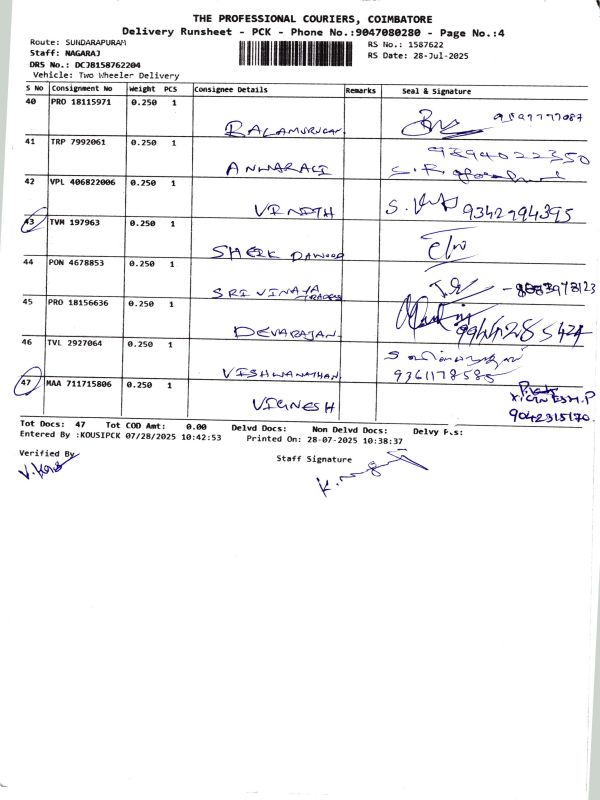 THE PROFESSIONAL COURIERS, COIMBATORE
Delivery Runsheet - PCK - Phone No.:9047080280 - Page No.:4
Route: SUNDARAPURAM
Staff: NAGARAJ
DRS No.: DCJB158762204
Vehicle: Two Wheeler Delivery
RS No.: 1587622
RS Date: 28-Jul-2025
S No Consignment No Weight PCS Consignee Details Remarks Seal & Signature
40 PRO 18115971 0.250 1
BALAMURUGAN
41 TRP 7992061 0.250 1
ANWARALI 9894022350
42 VPL 406822006 0.250 1
VINOTH 9342994395
43 TVM 197963 0.250 1
SHEIK DAWOOD
44 PON 4678853 0.250 1
SRI VINAYA
45 PRO 18156636 0.250 1
DEVARAJAN 9944285424
46 TVL 2927064 0.250 1
VISHWANATHAN 9361178585
47 MAA 711715806 0.250 1
VIGNESH VIGNESH.P
9042315170.
Tot Docs: 47 Tot COD Amt: 0.00 Delvd Docs: Non Delvd Docs: Delvy P.s:
Entered By :KOUSIPCK 07/28/2025 10:42:53 Printed On: 28-07-2025 10:38:37
Verified By Staff Signature